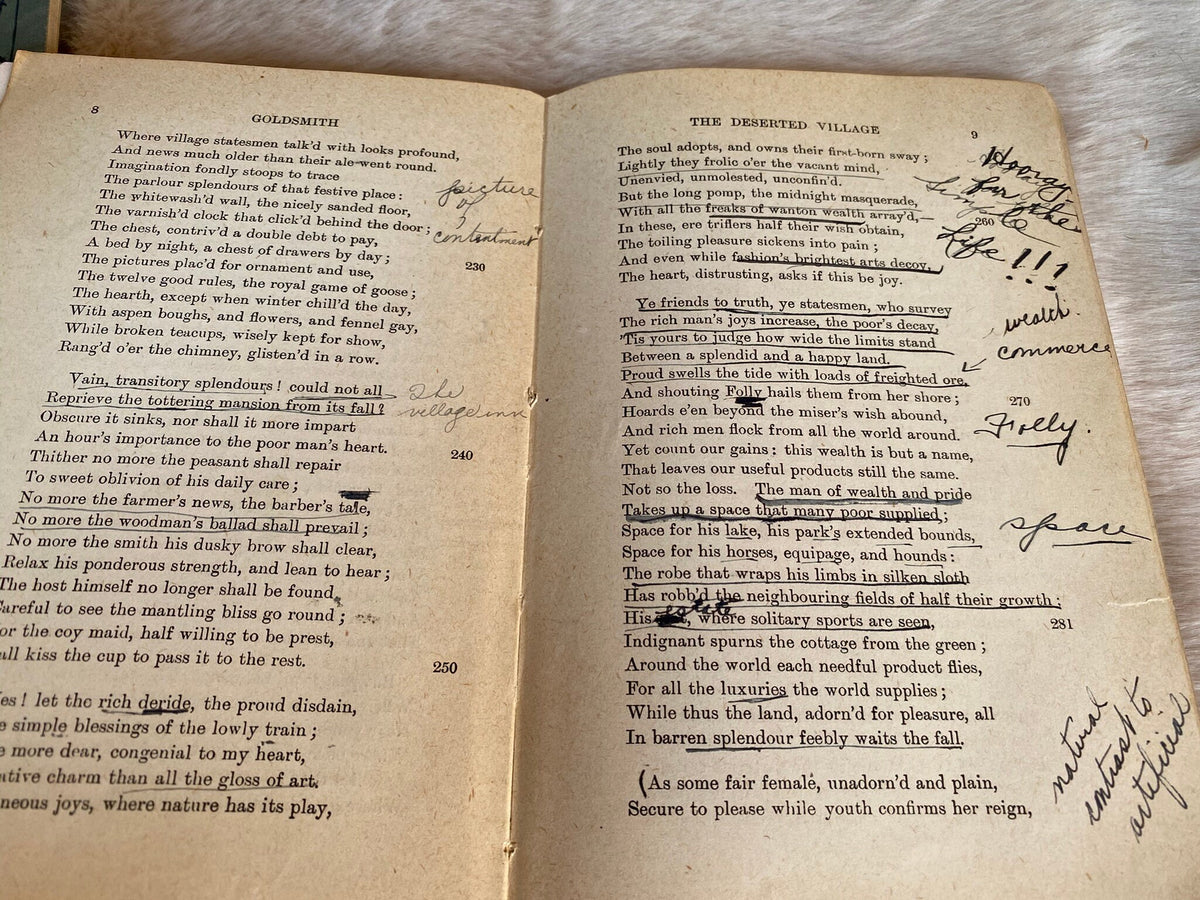 8
GOLDSMITH
Where village statesmen talk'd with looks profound,
And news much older than their ale went round.
Imagination fondly stoops to trace
The parlour splendours of that festive place:
The whitewash'd wall, the nicely sanded floor,
The varnish'd clock that click'd behind the door;
The chest, contriv'd a double debt to pay,
A bed by night, a chest of drawers by day; 230
The pictures plac'd for ornament and use,
The twelve good rules, the royal game of goose;
The hearth, except when winter chill'd the day,
With aspen boughs, and flowers, and fennel gay,
While broken teacups, wisely kept for show,
Rang'd o'er the chimney, glisten'd in a row.
picture
of
contentment
Vain, transitory splendours! could not all
Reprieve the tottering mansion from its fall?
Obscure it sinks, nor shall it more impart
An hour's importance to the poor man's heart.
Thither no more the peasant shall repair 240
To sweet oblivion of his daily care;
No more the farmer's news, the barber's tale,
No more the woodman's ballad shall prevail;
No more the smith his dusky brow shall clear,
Relax his ponderous strength, and lean to hear;
The host himself no longer shall be found
Careful to see the mantling bliss go round;
or the coy maid, half willing to be prest,
all kiss the cup to pass it to the rest. 250
The
village inn
es! let the rich deride, the proud disdain,
e simple blessings of the lowly train;
e more dear, congenial to my heart,
ative charm than all the gloss of art.
neous joys, where nature has its play,
THE DESERTED VILLAGE
9
The soul adopts, and owns their first-born sway;
Lightly they frolic o'er the vacant mind,
Unenvied, unmolested, unconfin'd.
But the long pomp, the midnight masquerade,
With all the freaks of wanton wealth array'd,— 260
In these, ere triflers half their wish obtain,
The toiling pleasure sickens into pain;
And even while fashion's brightest arts decoy,
The heart, distrusting, asks if this be joy.
Hooray
for the
Simple
Life!!!
Ye friends to truth, ye statesmen, who survey
The rich man's joys increase, the poor's decay,
'Tis yours to judge how wide the limits stand
Between a splendid and a happy land.
Proud swells the tide with loads of freighted ore,
And shouting Folly hails them from her shore; 270
Hoards e'en beyond the miser's wish abound,
And rich men flock from all the world around.
Yet count our gains: this wealth is but a name,
That leaves our useful products still the same.
Not so the loss. The man of wealth and pride
Takes up a space that many poor supplied;
Space for his lake, his park's extended bounds,
Space for his horses, equipage, and hounds:
The robe that wraps his limbs in silken sloth
Has robb'd the neighbouring fields of half their growth;
His estate, where solitary sports are seen, 281
Indignant spurns the cottage from the green;
Around the world each needful product flies,
For all the luxuries the world supplies;
While thus the land, adorn'd for pleasure, all
In barren splendour feebly waits the fall.
wealth.
commerce
Folly.
space
natural
contrast to
artificial
(As some fair female, unadorn'd and plain,
Secure to please while youth confirms her reign,